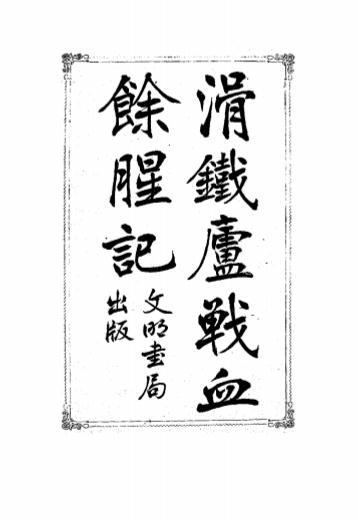 滑鐵廬戰血
餘腥記
文明書局
出版